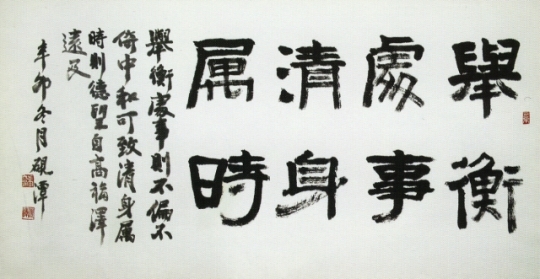 舉衡
處事
清身
属時
舉衡處事則不偏不
倚中和可致清身属
時則德望自高福澤
遠及
辛卯冬月硯潭